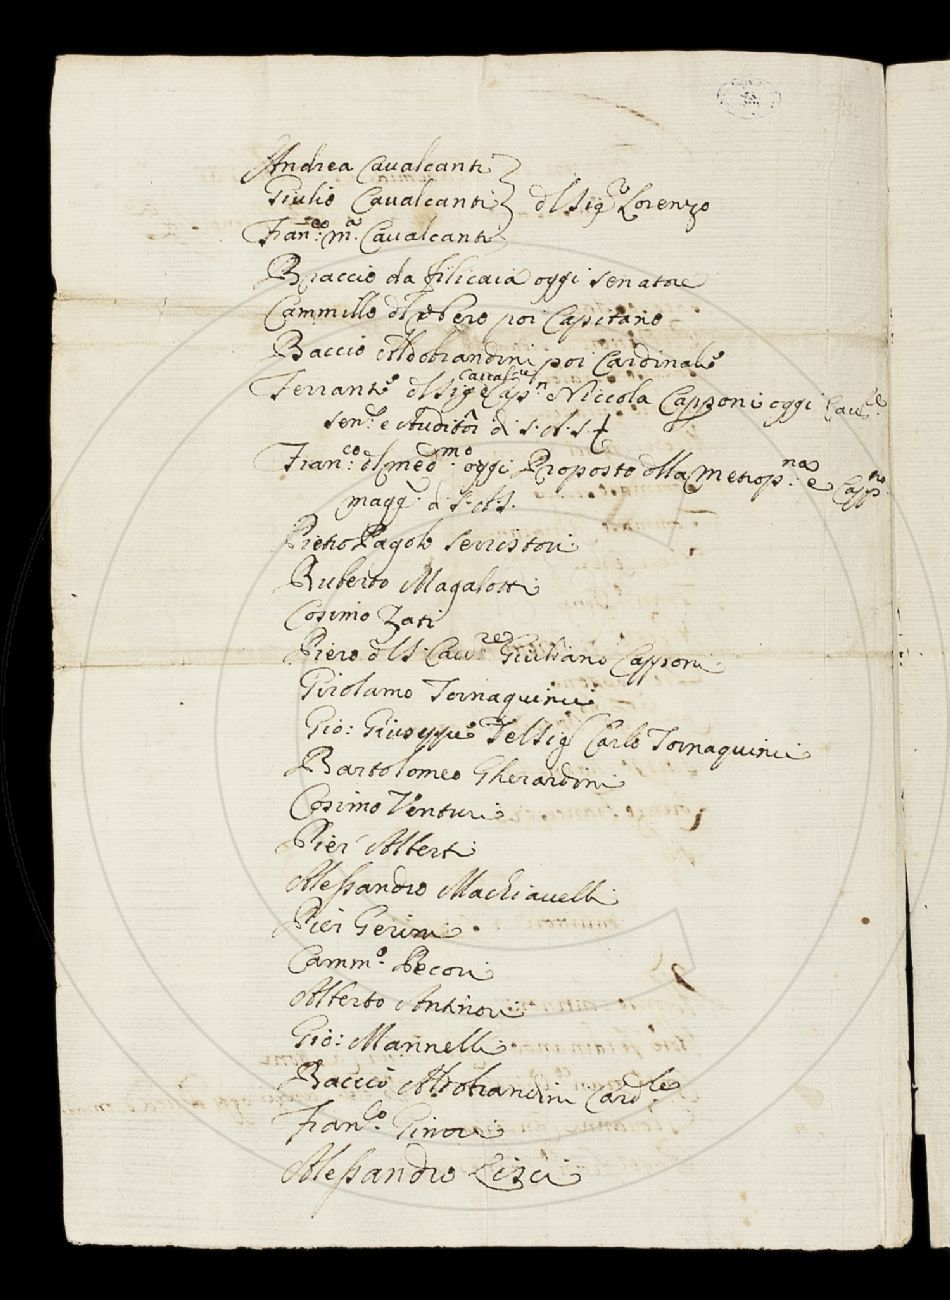 Andrea Cavalcanti
Giulio Cavalcanti } dl Sig.r Lorenzo
Fran.co M.a Cavalcanti
Braccio da filicaia oggi senatore
Cammillo dl poi Capitano
Baccio Aldobrandini poi Cardinale
Ferrante dl Sig.e Cap.n Niccola Capponi oggi Cau.re
sen.e e Auditor d S. A. S.
Fran.co dl med.mo oggi Proposto dlla Metrop.na e Capp.no
magg.e d S. A. S.
Pietro Pagolo Serristori
Ruberto Magalotti
Cosimo Zati
Piero dl S. Cau.re Giuliano Capponi
Girolamo Tornaquinci
Gio: Giuseppe Del Sig Carlo Tornaquinci
Bartolomeo Gherardini
Cosimo Venturi
Pier Alberti
Alessandro Machiavelli
Pier Gerini
Camm.o Pecori
Alberto Antinori
Gio: Mannelli
Baccio Aldobrandini Card.le
Fran.co Ginori
Alessandro